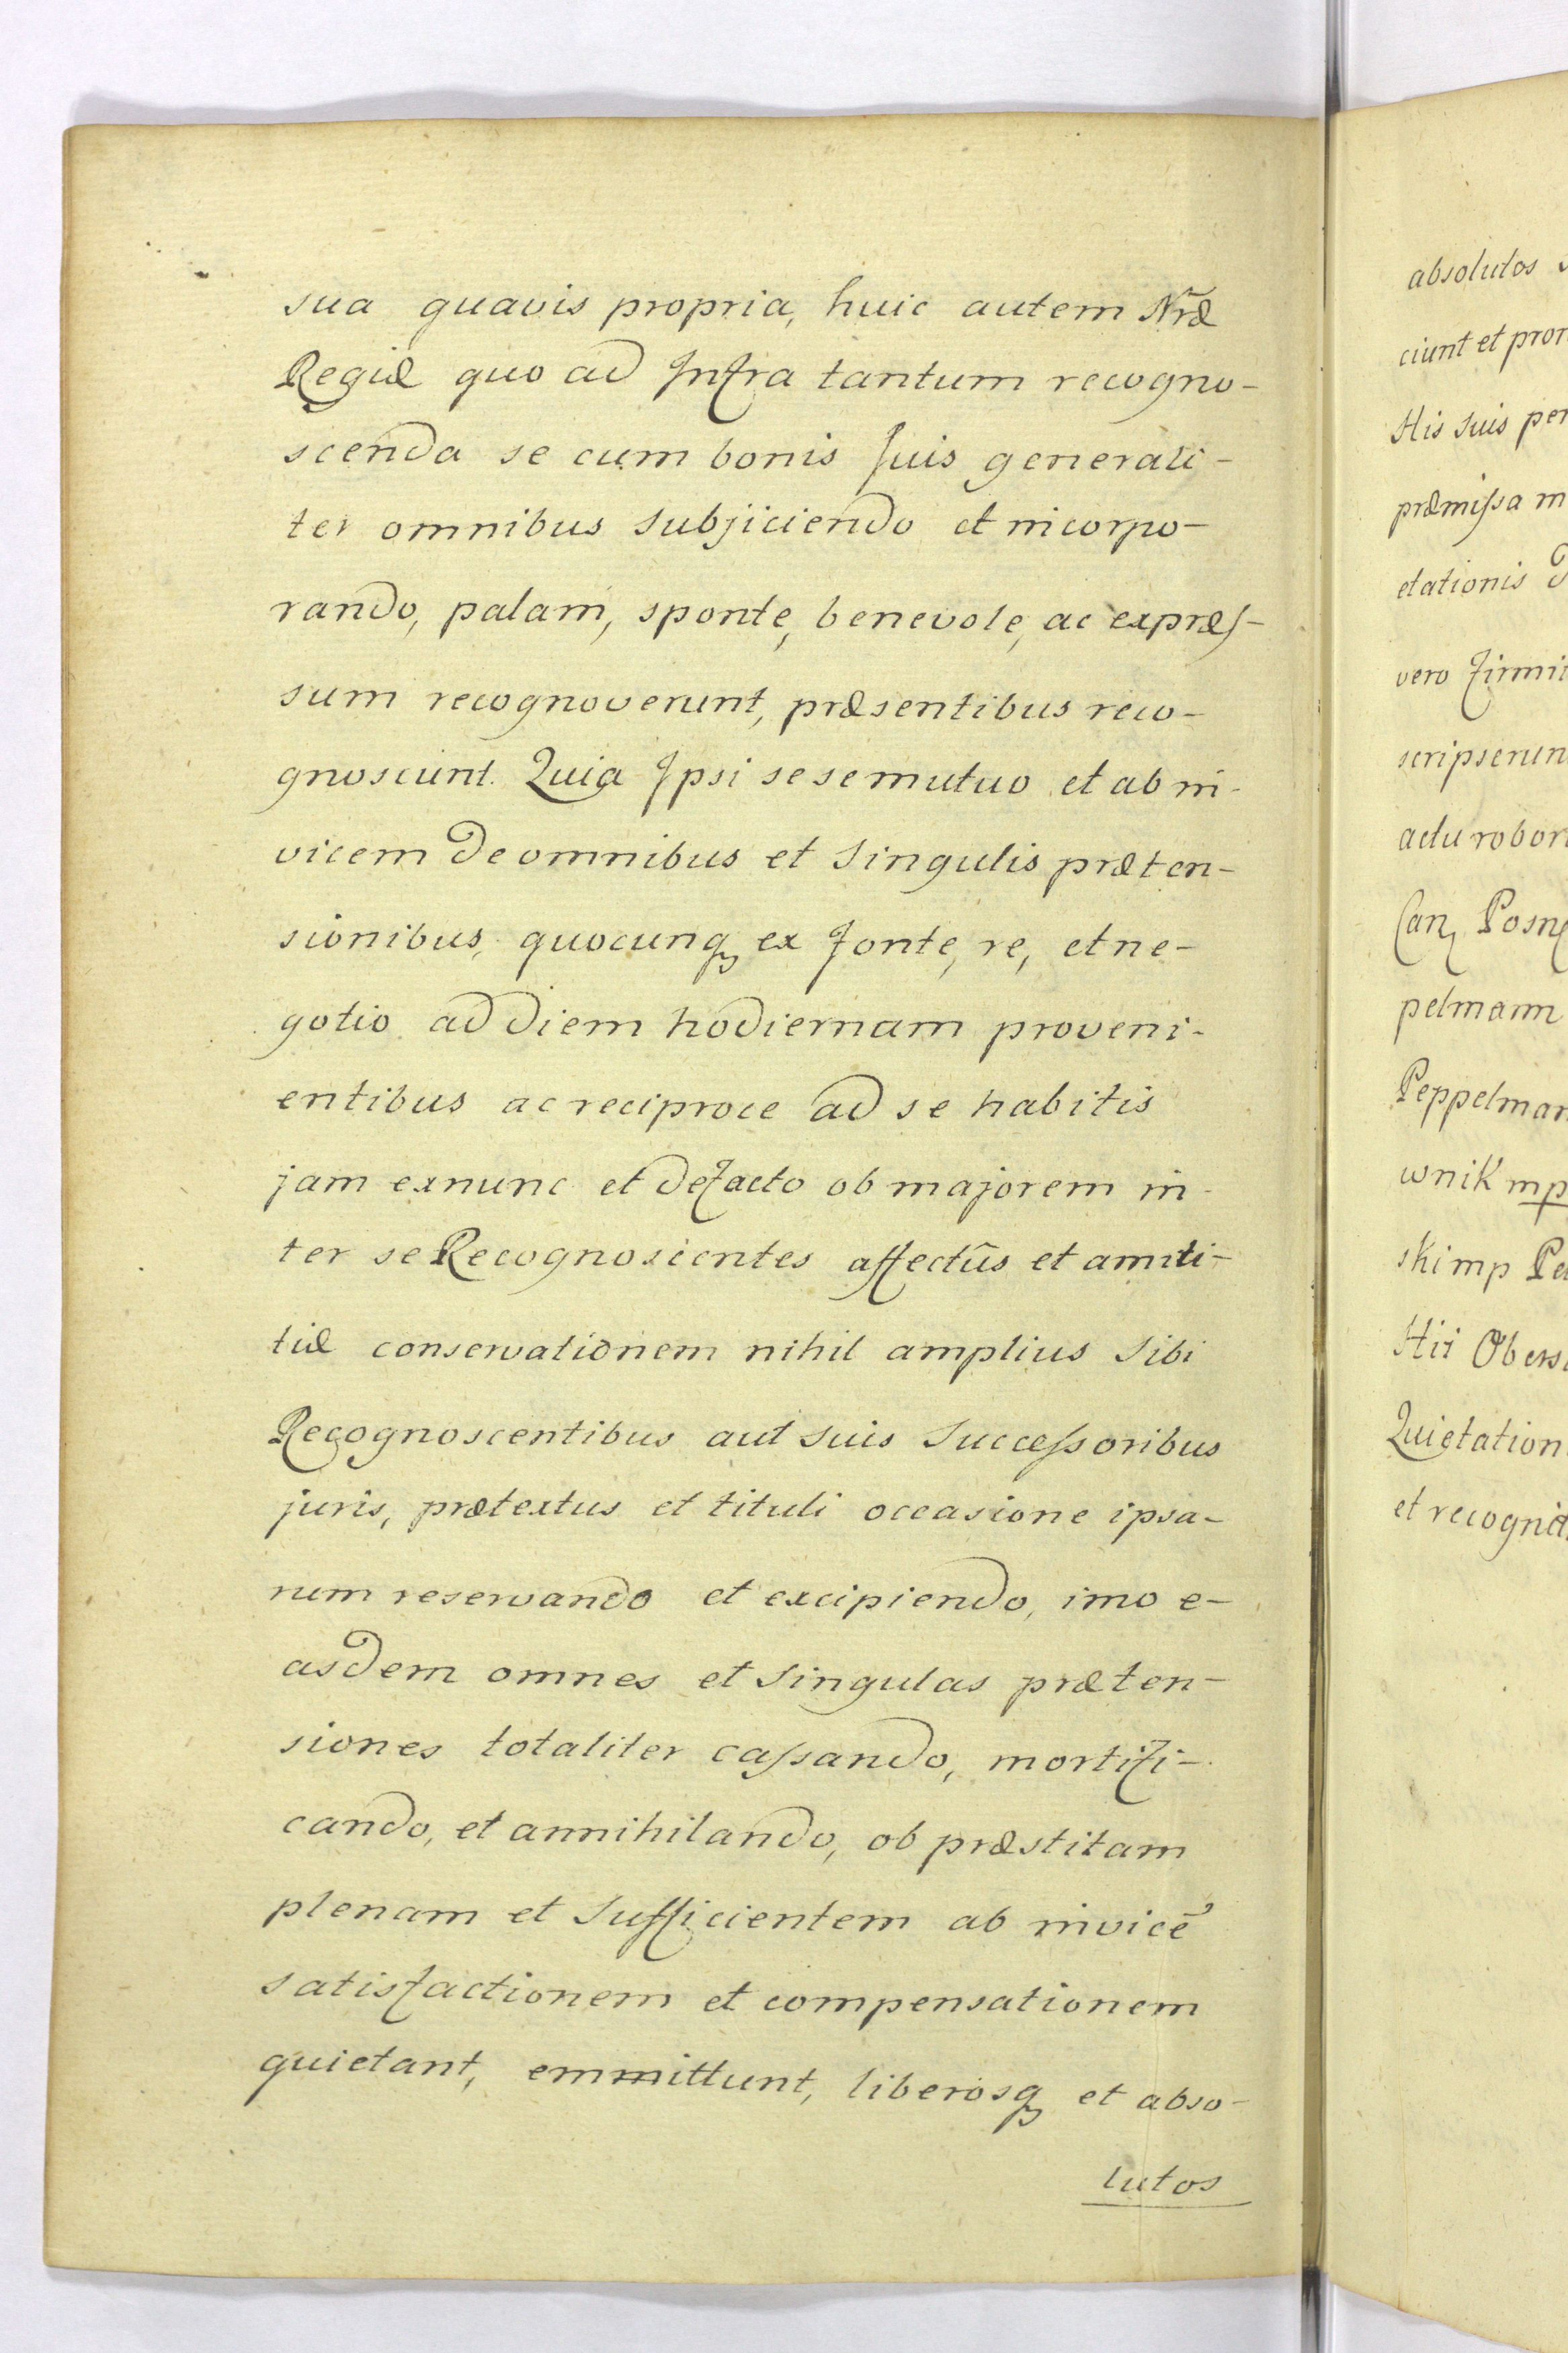 sua quavis propria, huic autem Nr̃æ
Regiæ quo ad Infra tantum recogno-
scenda se cum bonis suis generali-
ter omnibus subjiciendo et incorpo-
rando, palam, sponte, benevole, ac expræs-
sum recognoverunt, præsentibus reco-
gnoscunt. Quia Ipsi sese mutuo et ab in-
vicem de omnibus et singulis præten-
sionibus, quocunq; ex fonte, re, et ne-
gotio ad diem hodiernam proveni-
entibus ac reciproce ad se habitis
jam exnunc et defacto ob majorem in-
ter se Recognoscentes affectûs et amiti-
tiæ conservationem nihil amplius sibi
Recognoscentibus aut suis successoribus
juris, prætextus et tituli occasione ipsa-
rum reservando et excipiendo, imo e-
asdem omnes et singulas præten-
siones totaliter cassando, mortifi-
cando, et annihilando, ob præstitam
plenam et sufficientem ab invicẽ
satisfactionem et compensationem
quietant, emmittunt, liberosq; et abso-
lutos
absolutos
ciunt et pror
His suis per
præmissa m
etationis
vero firmi
scripserun
actu robor
Can. Posn
pelmann
Peppelman
wnik mp
ski mp Pe
Hii Obers
Quietation
et recognit